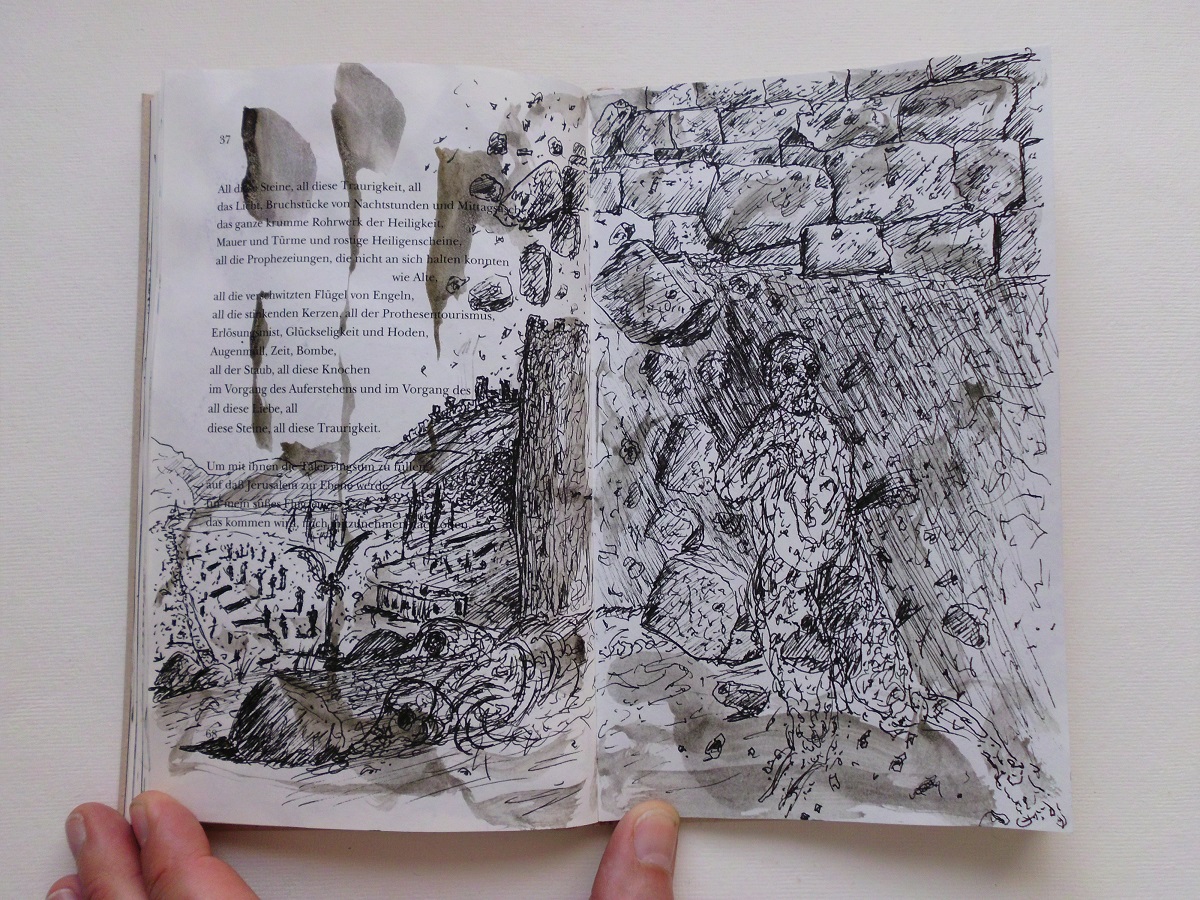 37
All diese Steine, all diese Traurigkeit, all
das Licht, Bruchstücke von Nachtstunden und
das ganze krumme Rohrwerk der Heiligkeit,
Mauer und Türme und rostige Heiligenscheine,
all die Prophezeiungen, die nicht an sich halten konnten
wie Alte,
all die verschwitzten Flügel von Engeln,
all die stinkenden Kerzen, all der Prothesentourismus,
Erlösungsmist, Glückseligkeit und Hoden,
Augenmaß, Zeit, Bombe,
all der Staub, all diese Knochen
im Vorgang des Auferstehens und im Vorgang des
all diese Liebe, all
diese Steine, all diese Traurigkeit.
Um mit ihnen die Täler ringsum zu füllen,
auf daß Jerusalem zur Ebene werde
für mein süßes
das kommen wird, mich mitzunehmen nach oben